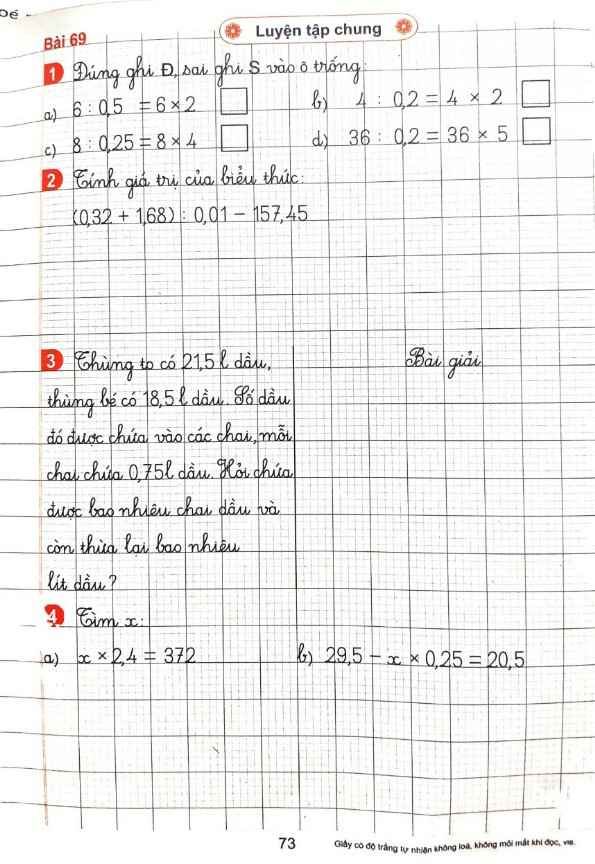 Luyện tập chung
Bài 69
1 Đúng ghi Đ, sai ghi S vào ô trống:
a) 6 : 0,5 = 6 × 2 b) 4 : 0,2 = 4 × 2
c) 8 : 0,25 = 8 × 4 d) 36 : 0,2 = 36 × 5
2 Tính giá trị của biểu thức:
(0,32 + 1,68) : 0,01 – 157,45
3 Thùng to có 21,5 l dầu, Bài giải
thùng bé có 18,5 l dầu. Số dầu
đó được chứa vào các chai, mỗi
chai chứa 0,75l dầu. Hỏi chứa
được bao nhiêu chai dầu và
còn thừa lại bao nhiêu
lít dầu?
4 Tìm x:
a) x × 2,4 = 372 b) 29,5 – x × 0,25 = 20,5
73 Giấy có độ trắng tự nhiên không loá, không mỏi mắt khi đọc, viết.